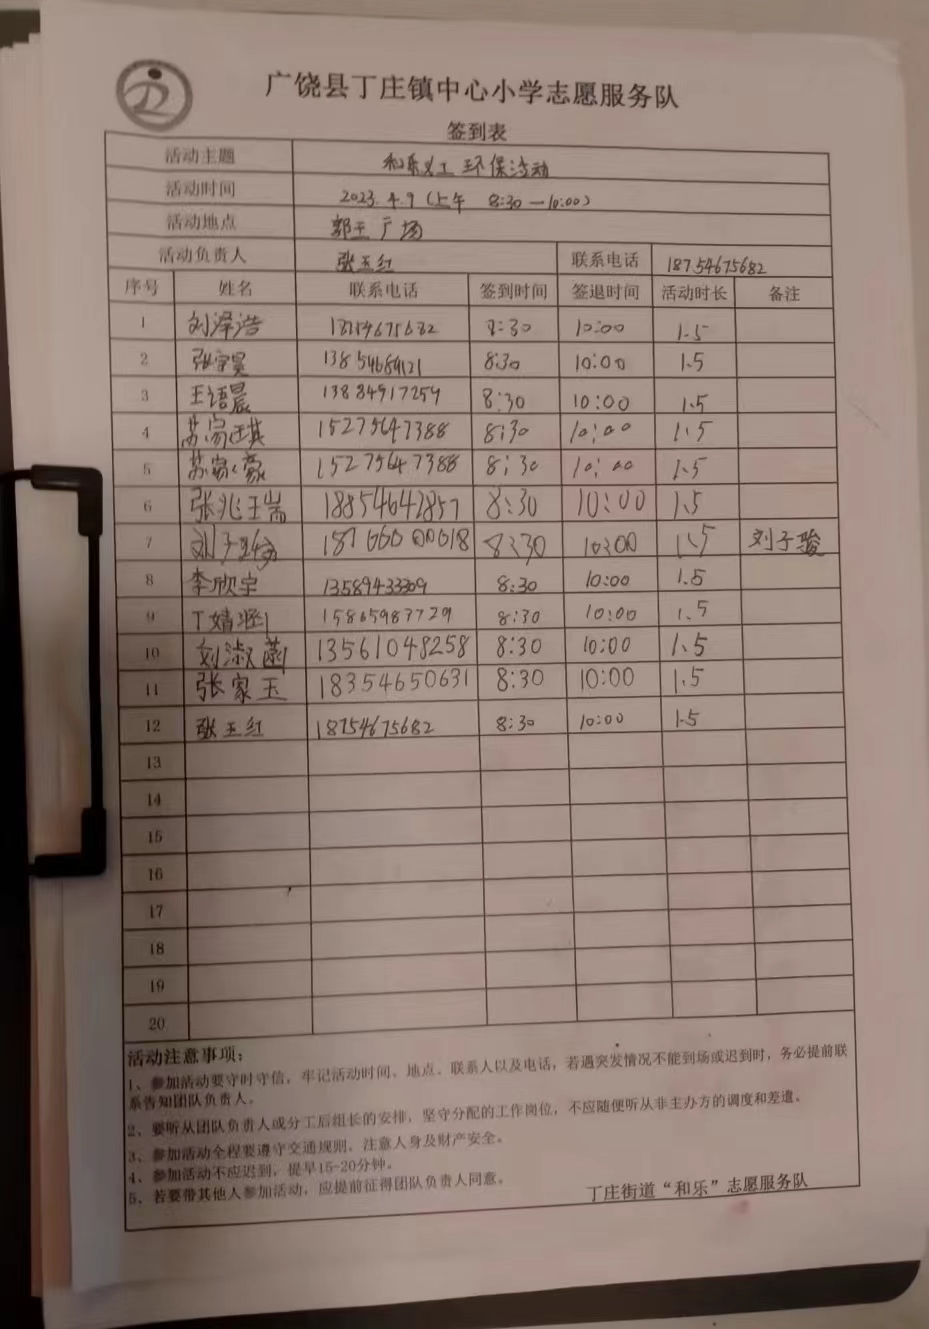 广饶县丁庄镇中心小学志愿服务队
签到表
活动主题 和乐义工 环保活动
活动时间 2023.4.9(上午 8:30—10:00)
活动地点 郭王广场
活动负责人 张玉红 联系电话 18754675682
序号 姓名 联系电话 签到时间 签退时间 活动时长 备注
1 刘泽浩 8:30 10:00 1.5
2 张宇昊 13854684121 8:30 10:00 1.5
3 王语晨 13884917259 8:30 10:00 1.5
4 苏家琪 15275647388 8:30 10:00 1.5
5 苏家豪 15275647388 8:30 10:00 1.5
6 张兆瑞 18854642857 8:30 10:00 1.5
7 刘子骏 8:30 10:00 1.5 刘子骏
8 李欣宇 13589433309 8:30 10:00 1.5
9 丁婧涵 15865983729 8:30 10:00 1.5
10 刘淑菡 13561048258 8:30 10:00 1.5
11 张家玉 18354650631 8:30 10:00 1.5
12 张玉红 18754675682 8:30 10:00 1.5
13
14
15
16
17
18
19
20
活动注意事项：
1、参加活动要守时守信，牢记活动时间、地点、联系人以及电话，若遇突发情况不能到场或迟到时，务必提前联
系告知团队负责人。
2、要听从团队负责人或分工后组长的安排，坚守分配的工作岗位，不应随便听从非主办方的调度和差遣。
3、参加活动全程要遵守交通规则，注意人身及财产安全。
4、参加活动不应迟到，提早15-20分钟。
5、若要带其他人参加活动，应提前征得团队负责人同意。
丁庄街道“和乐”志愿服务队